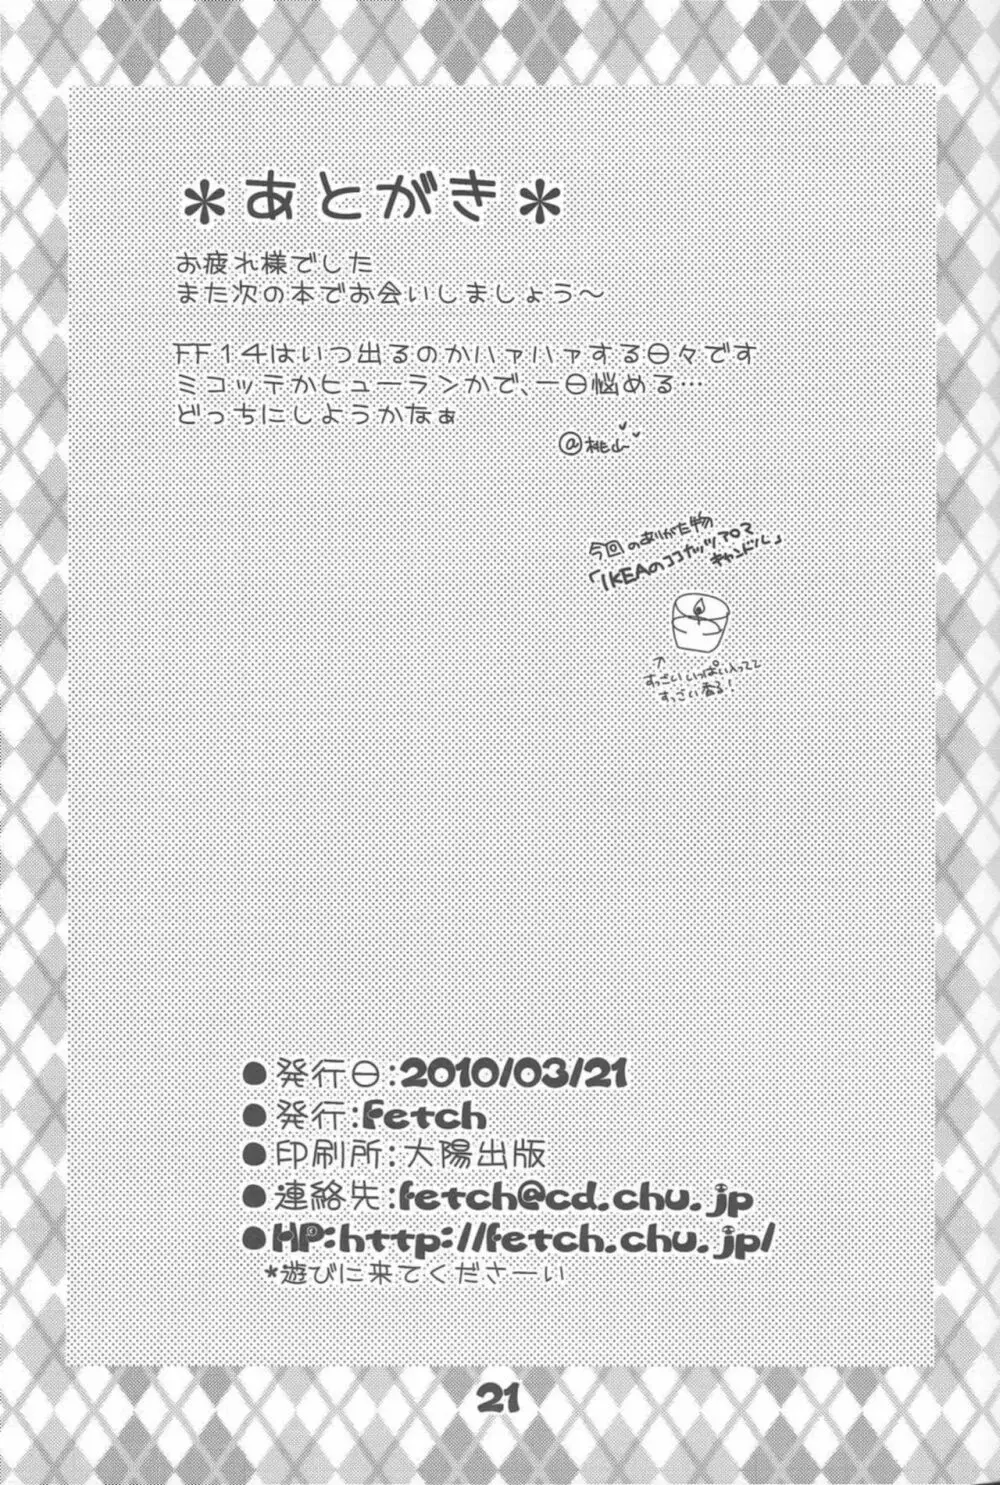 ＊あとがき＊
お疲れ様でした
また次の本でお会いしましょう～
FF14はいつ出るのかハァハァする日々です
ミコッテかヒューランかで、一日悩める…
どっちにしようかなぁ
@桃山
今回のありがた物
「IKEAのココナッツアロマ
キャンドル」
すっごいいっぱい入ってて
すっごい香る！
●発行日:2010/03/21
●発行:fetch
●印刷所:大陽出版
●連絡先:fetch@cd.chu.jp
●HP:http://fetch.chu.jp/
*遊びに来てくださーい
21